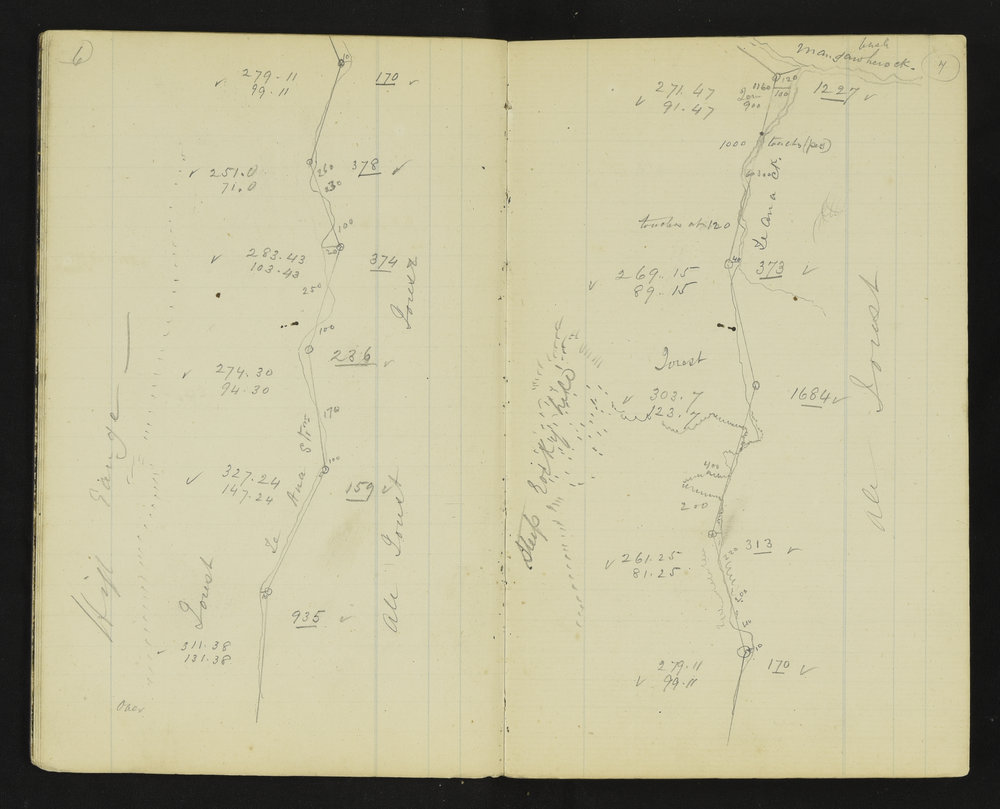 6
279.11
99.11
170
10
251.0
71.0
378
260
230
100
50
283.43
103.43
374
250
Forest
100
274.30
94.30
236
170
High Range
327.24
147.24
159
100
Te Ana Strm
All Forest
Forest
935
311.38
131.38
Over
7
271.47
91.47
900
1160
120
100
1227
1000 touches (peg)
Te ana ck.
touches at 120
269.15
89.15
373
40
Forest
303.7
123.7
1684
All Forest
Steep Rocky hills
400
200
261.25
81.25
313
200
50
10
279.11
99.11
170